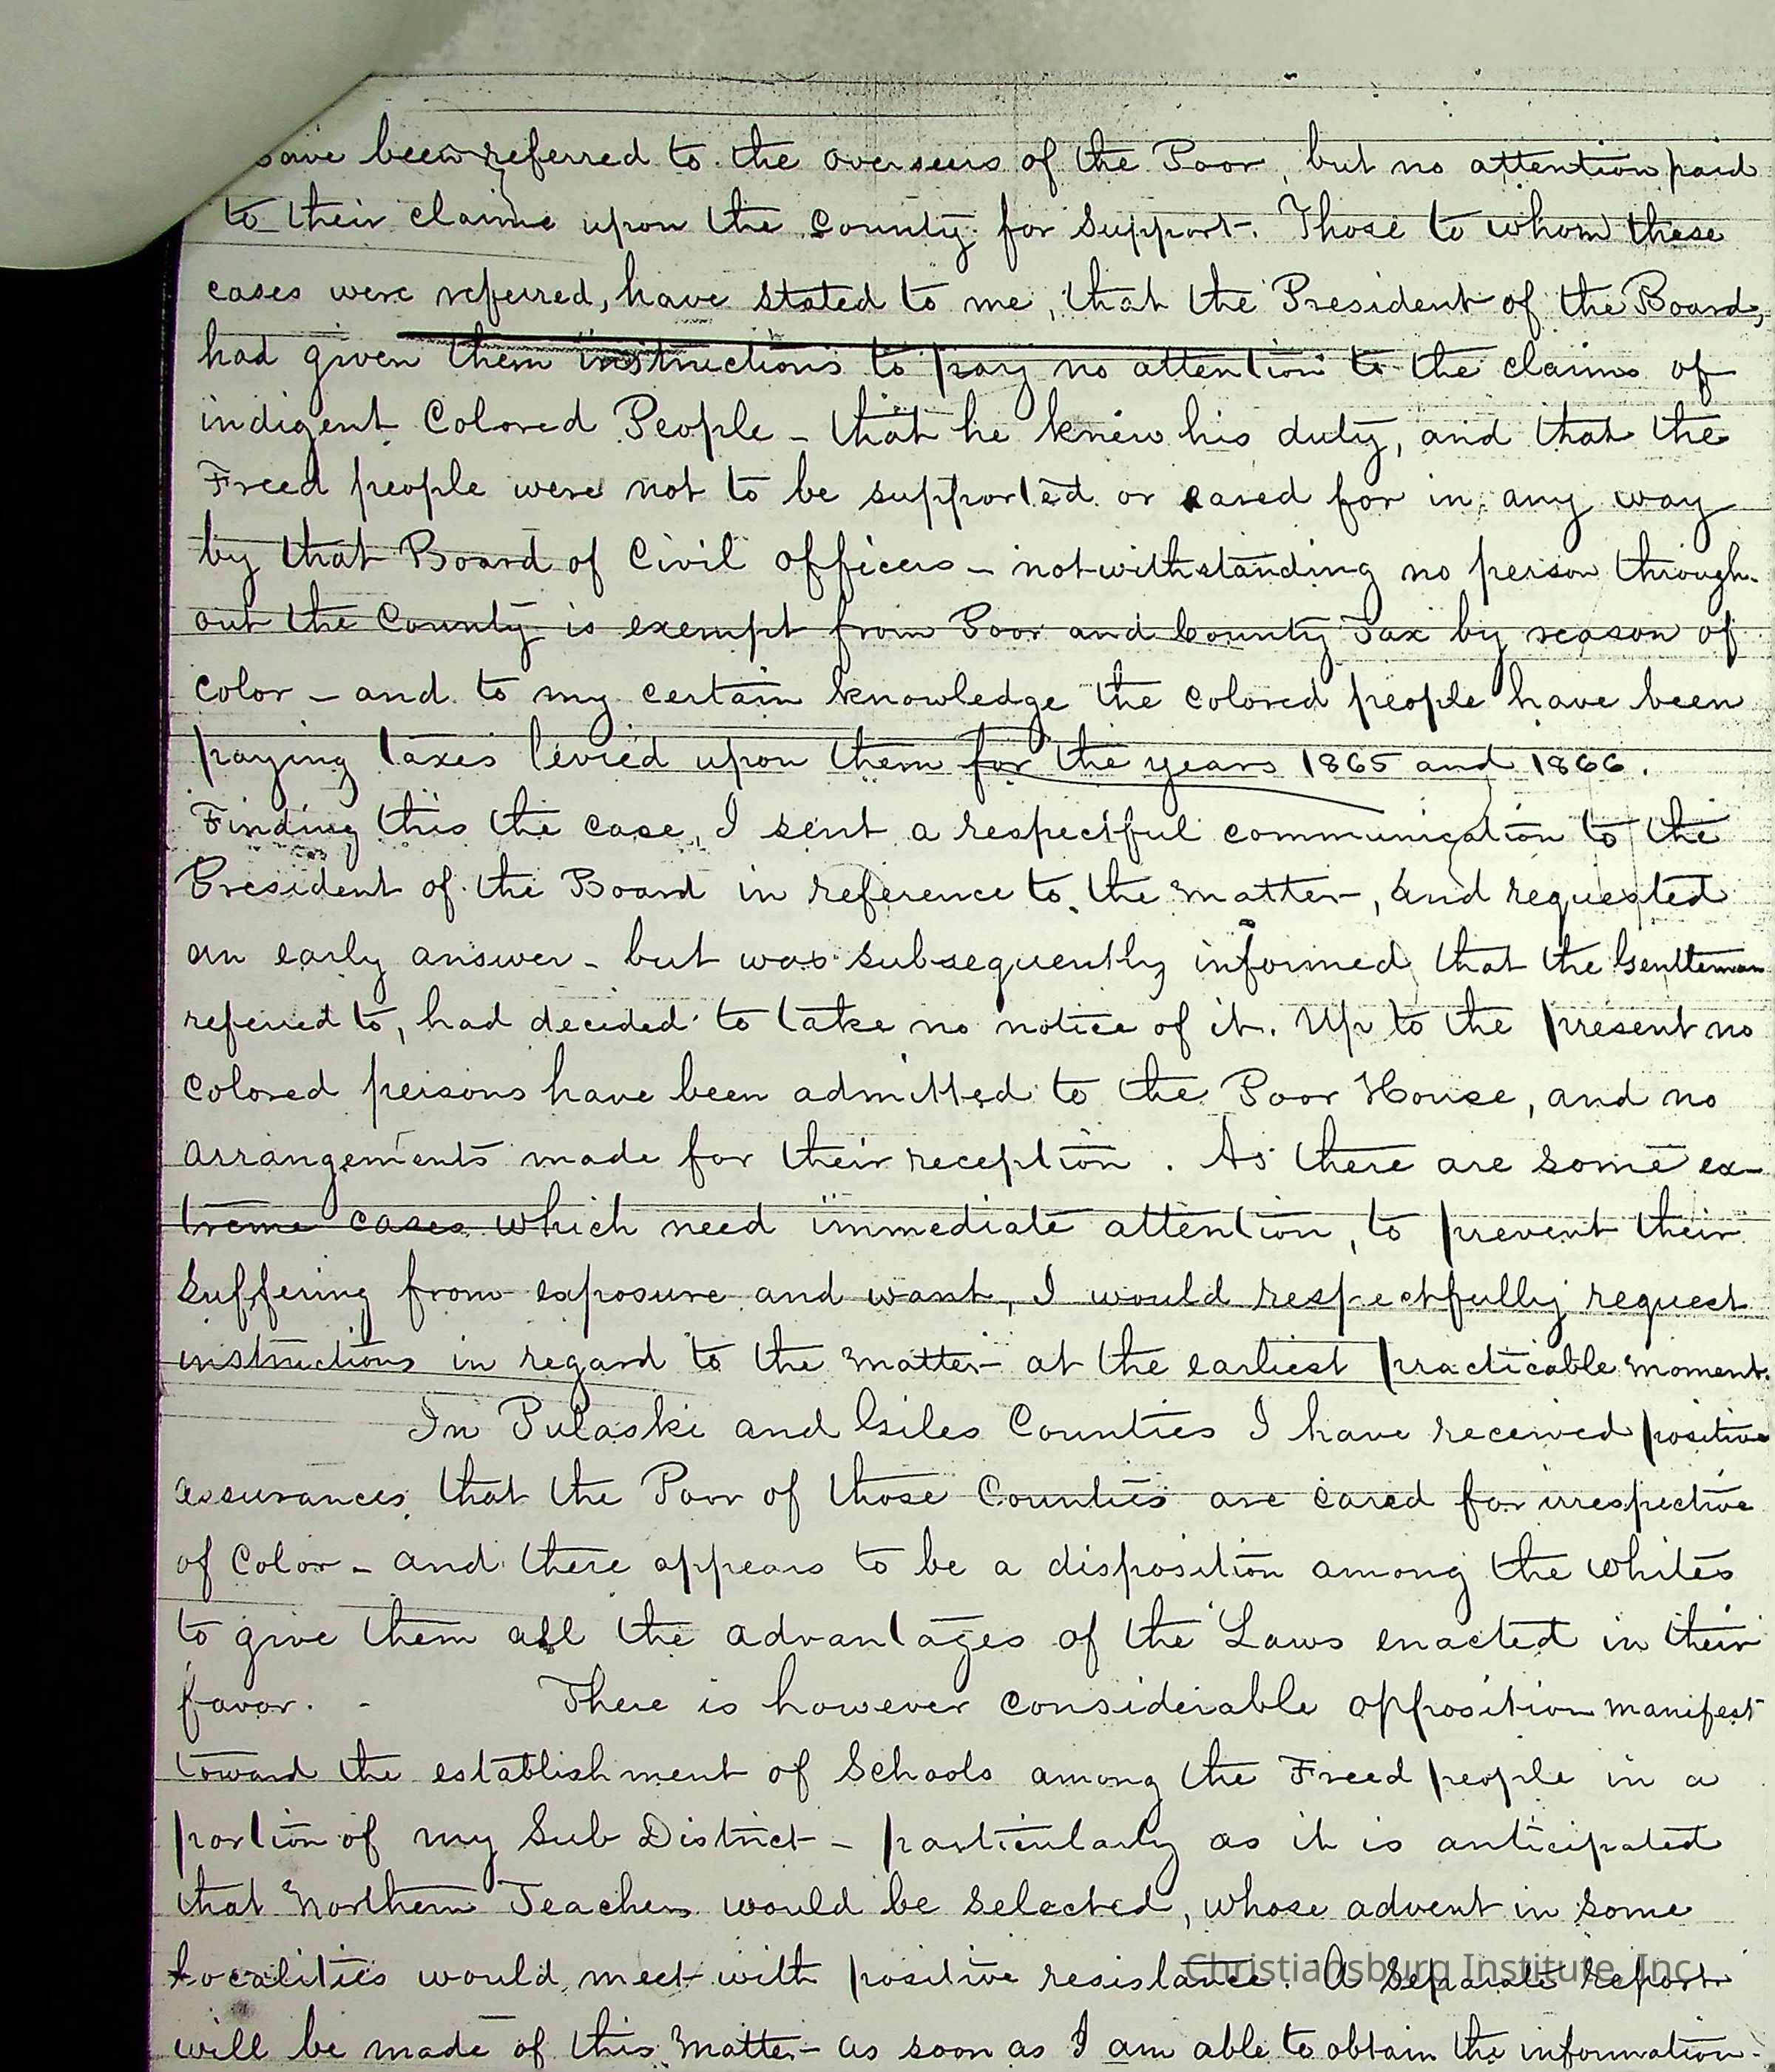 have been referred to the overseers of the Poor, but no attention paid
to their claims upon the County for Support. Those to whom these
cases were referred, have stated to me, that the President of the Board,
had given them instructions to pay no attention to the claims of
indigent Colored People - that he knew his duty, and that the
Freed people were not to be supported or cared for in any way
by that Board of Civil officers - notwithstanding no person through-
out the County is exempt from Poor and County Tax by reason of
color - and to my certain knowledge the colored people have been
paying taxes levied upon them for the years 1865 and 1866.
Finding this the case, I sent a respectful communication to the
President of the Board in reference to the matter, and requested
an early answer - but was subsequently informed that the Gentleman
referred to, had decided to take no notice of it. Up to the present no
Colored persons have been admitted to the Poor House, and no
arrangements made for their reception. As there are some ex-
treme cases which need immediate attention, to prevent their
suffering from exposure and want, I would respectfully request
instructions in regard to the matter at the earliest practicable moment.
In Pulaski and Giles Counties I have received positive
assurances that the Poor of those Counties are cared for irrespective
of Color - and there appears to be a disposition among the whites
to give them all the advantages of the Laws enacted in their
favor. - There is however considerable opposition manifest
toward the establishment of Schools among the Freed people in a
portion of my Sub District - particularly as it is anticipated
that Northern Teachers would be selected, whose advent in some
localities would meet with positive resistance. A separate report
Christiansburg Institute, Inc
will be made of this matter as soon as I am able to obtain the information.